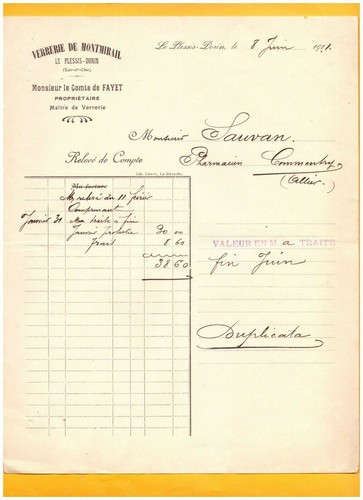 VERRERIE DE MONTMIRAIL
LE PLESSIS-DORIN
(Loir-et-Cher)
Monsieur le Comte de FAYET
PROPRIÉTAIRE
Maître de Verrerie
Le Plessis-Dorin, le 8 Juin 1901.
Monsieur Sauvan.
Pharmacien Commentry
(Allier)
Relevé de Compte
Ma facture
M relevé du 11 février
Comprenant
Janvier 31 Ma traite à fin
Janvier protestée 30 00
frais 8 60
38 60
VALEUR EN M a TRAITE
fin Juin
Duplicata